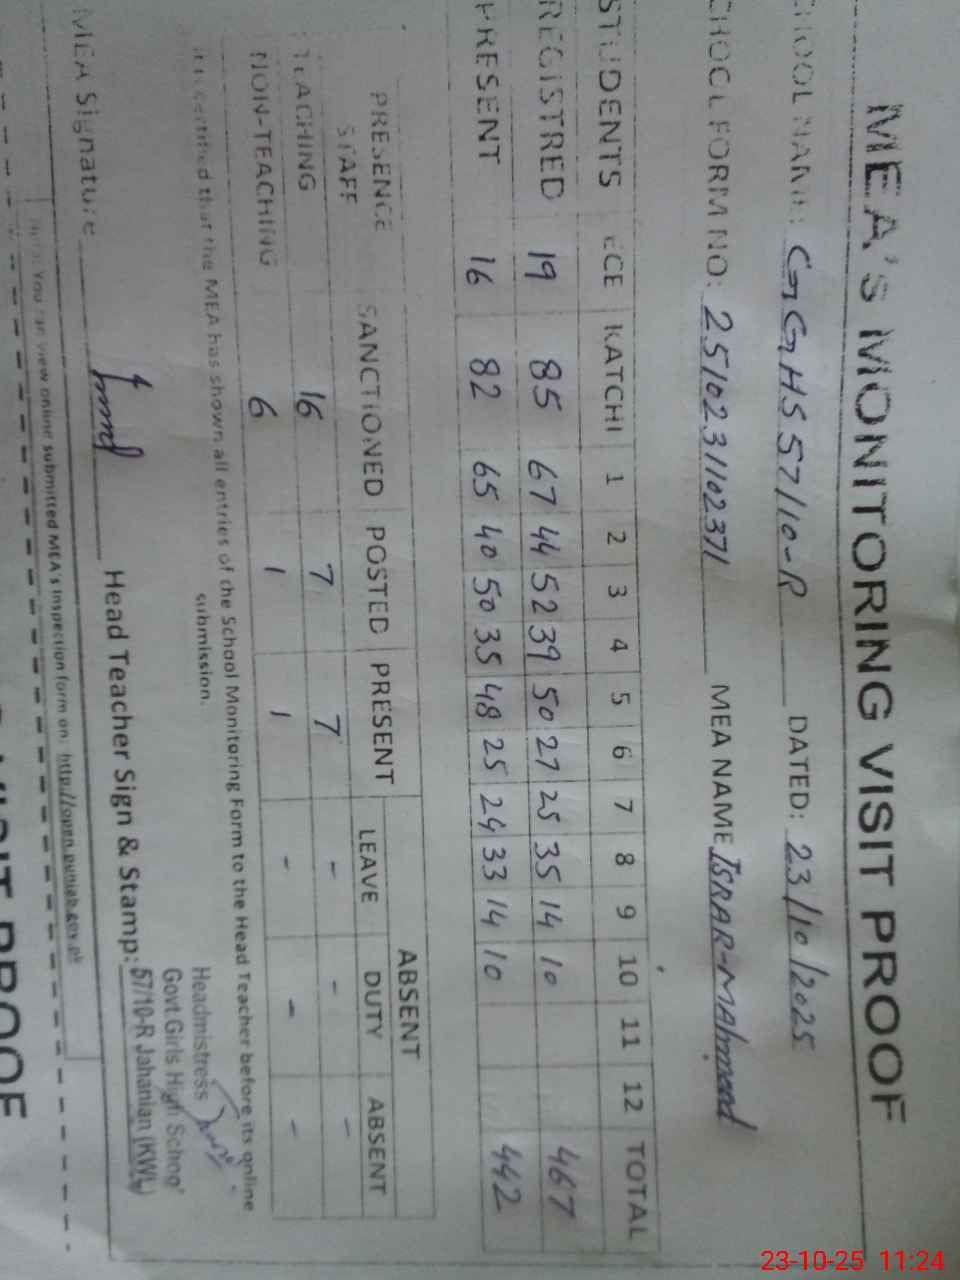 MEA'S MONITORING VISIT PROOF
SCHOOL NAME: GGHS 57/10-R DATED: 23/10/2025
SCHOOL FORM NO: 2510231102371 MEA NAME ISRAR-MAhmood
STUDENTS ECE KATCHI 1 2 3 4 5 6 7 8 9 10 11 12 TOTAL
REGISTRED 19 85 67 44 52 39 50 27 25 35 14 10 467
PRESENT 16 82 65 40 50 35 48 25 24 33 14 10 442
PRESENCE SANCTIONED POSTED PRESENT ABSENT
STAFF LEAVE DUTY ABSENT
TEACHING 16 7 7 - - -
NON-TEACHING 6 1 1 - - -
It is certified that the MEA has shown all entries of the School Monitoring Form to the Head Teacher before its online
submission.
Headmistress
Govt.Girls High School
MEA Signature Head Teacher Sign & Stamp: 57/10-R Jahanian (KWL)
You can view online submitted MEA's Inspection form on: http://open.punjab.gov.pk
VISIT PROOF
23-10-25 11:24